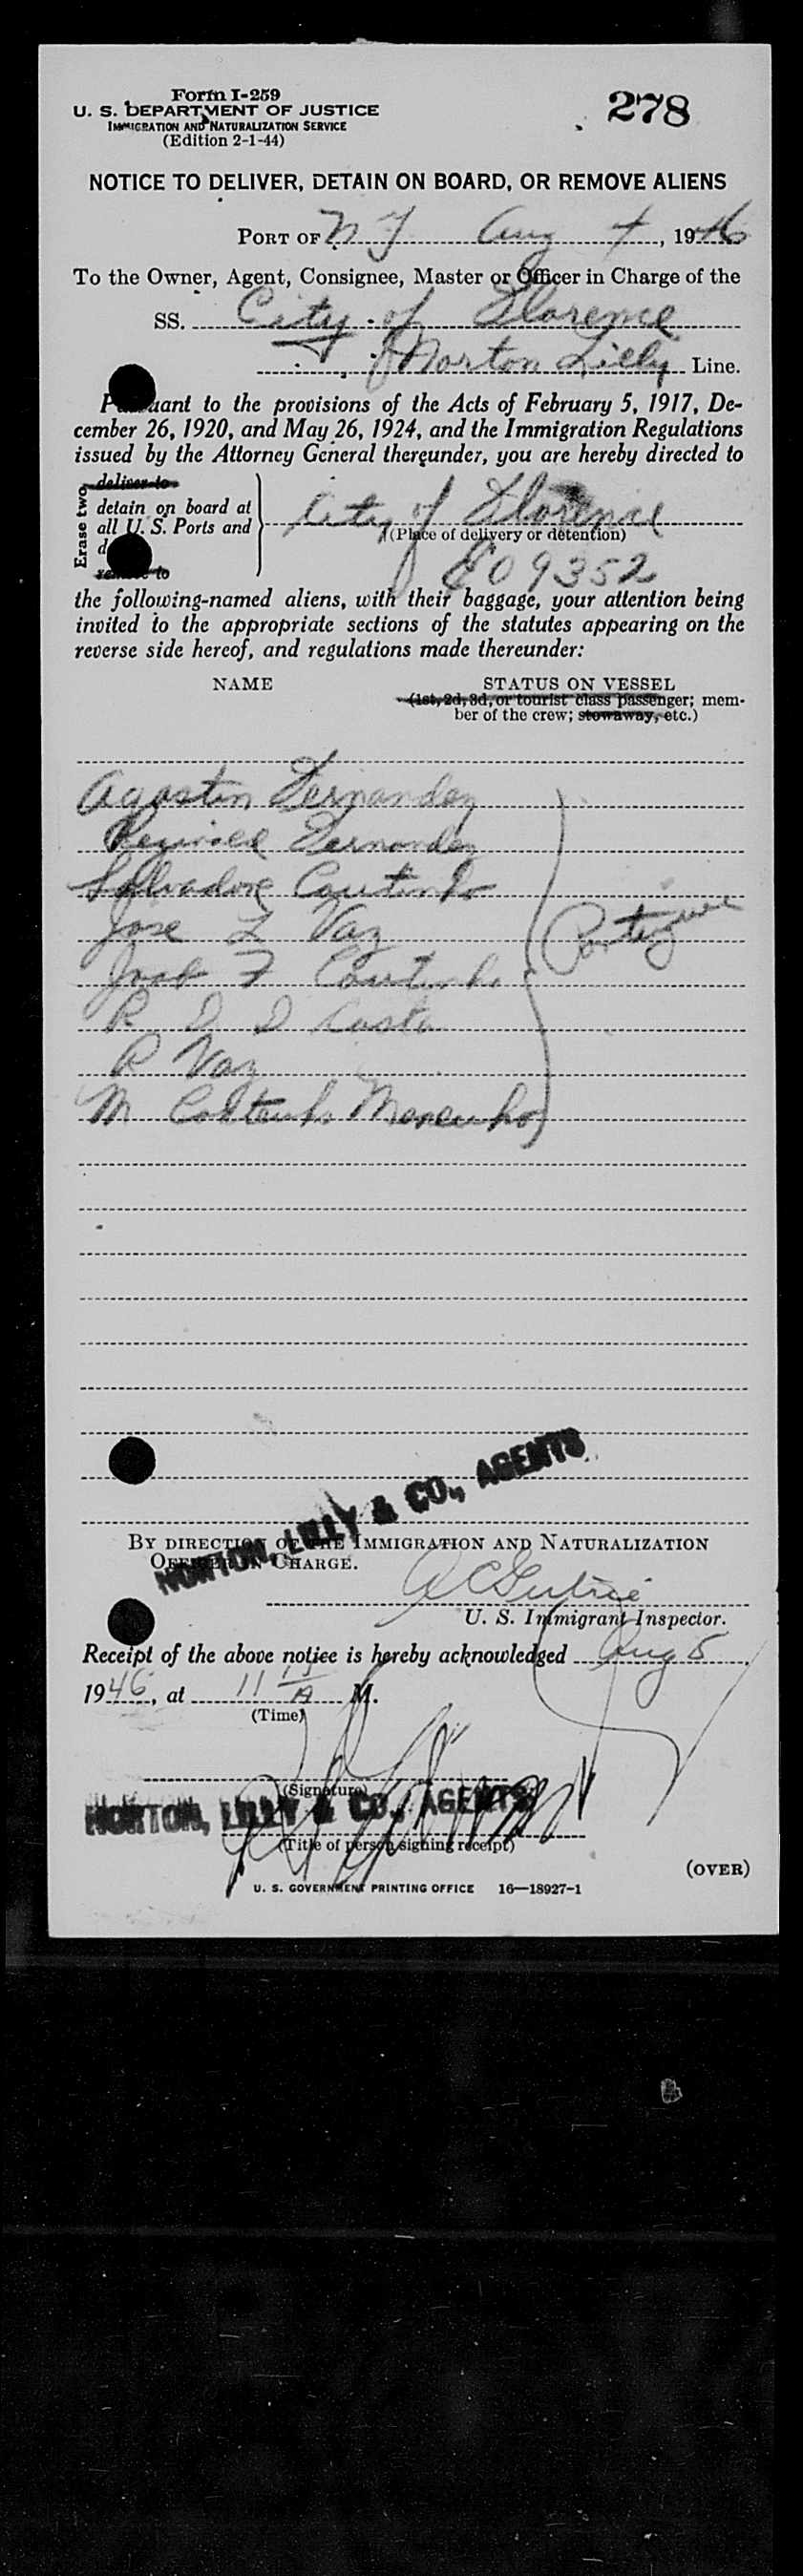 Form I-259
U. S. DEPARTMENT OF JUSTICE
IMMIGRATION AND NATURALIZATION SERVICE
(Edition 2-1-44)
278
NOTICE TO DELIVER, DETAIN ON BOARD, OR REMOVE ALIENS
PORT OF N Y Aug 4, 1946
To the Owner, Agent, Consignee, Master or Officer in Charge of the
SS. City of Florence
Norton Lilly Line.
Pursuant to the provisions of the Acts of February 5, 1917, De-
cember 26, 1920, and May 26, 1924, and the Immigration Regulations
issued by the Attorney General thereunder, you are hereby directed to
Erase two
deliver to
detain on board at
all U. S. Ports and
remove to
City of Florence
(Place of delivery or detention)
E09352
the following-named aliens, with their baggage, your attention being
invited to the appropriate sections of the statutes appearing on the
reverse side hereof, and regulations made thereunder:
NAME STATUS ON VESSEL
(1st, 2d, 3d, or tourist class passenger; mem-
ber of the crew; stowaway, etc.)
Agostin Fernandez
Fernandez
Salvadore Coutinho
Jose L Vaz
F Coutinho
R D D Costa
R Vaz
M
Portuguese
NORTON, LILLY & CO., AGENTS
BY DIRECTION OF THE IMMIGRATION AND NATURALIZATION
OFFICER IN CHARGE.
U. S. Immigrant Inspector.
Receipt of the above notice is hereby acknowledged Aug 5,
1946, at 11 15 A M.
(Time)
(Signature)
NORTON, LILLY & CO., AGENTS
(Title of person signing receipt)
(OVER)
U. S. GOVERNMENT PRINTING OFFICE 16—18927-1